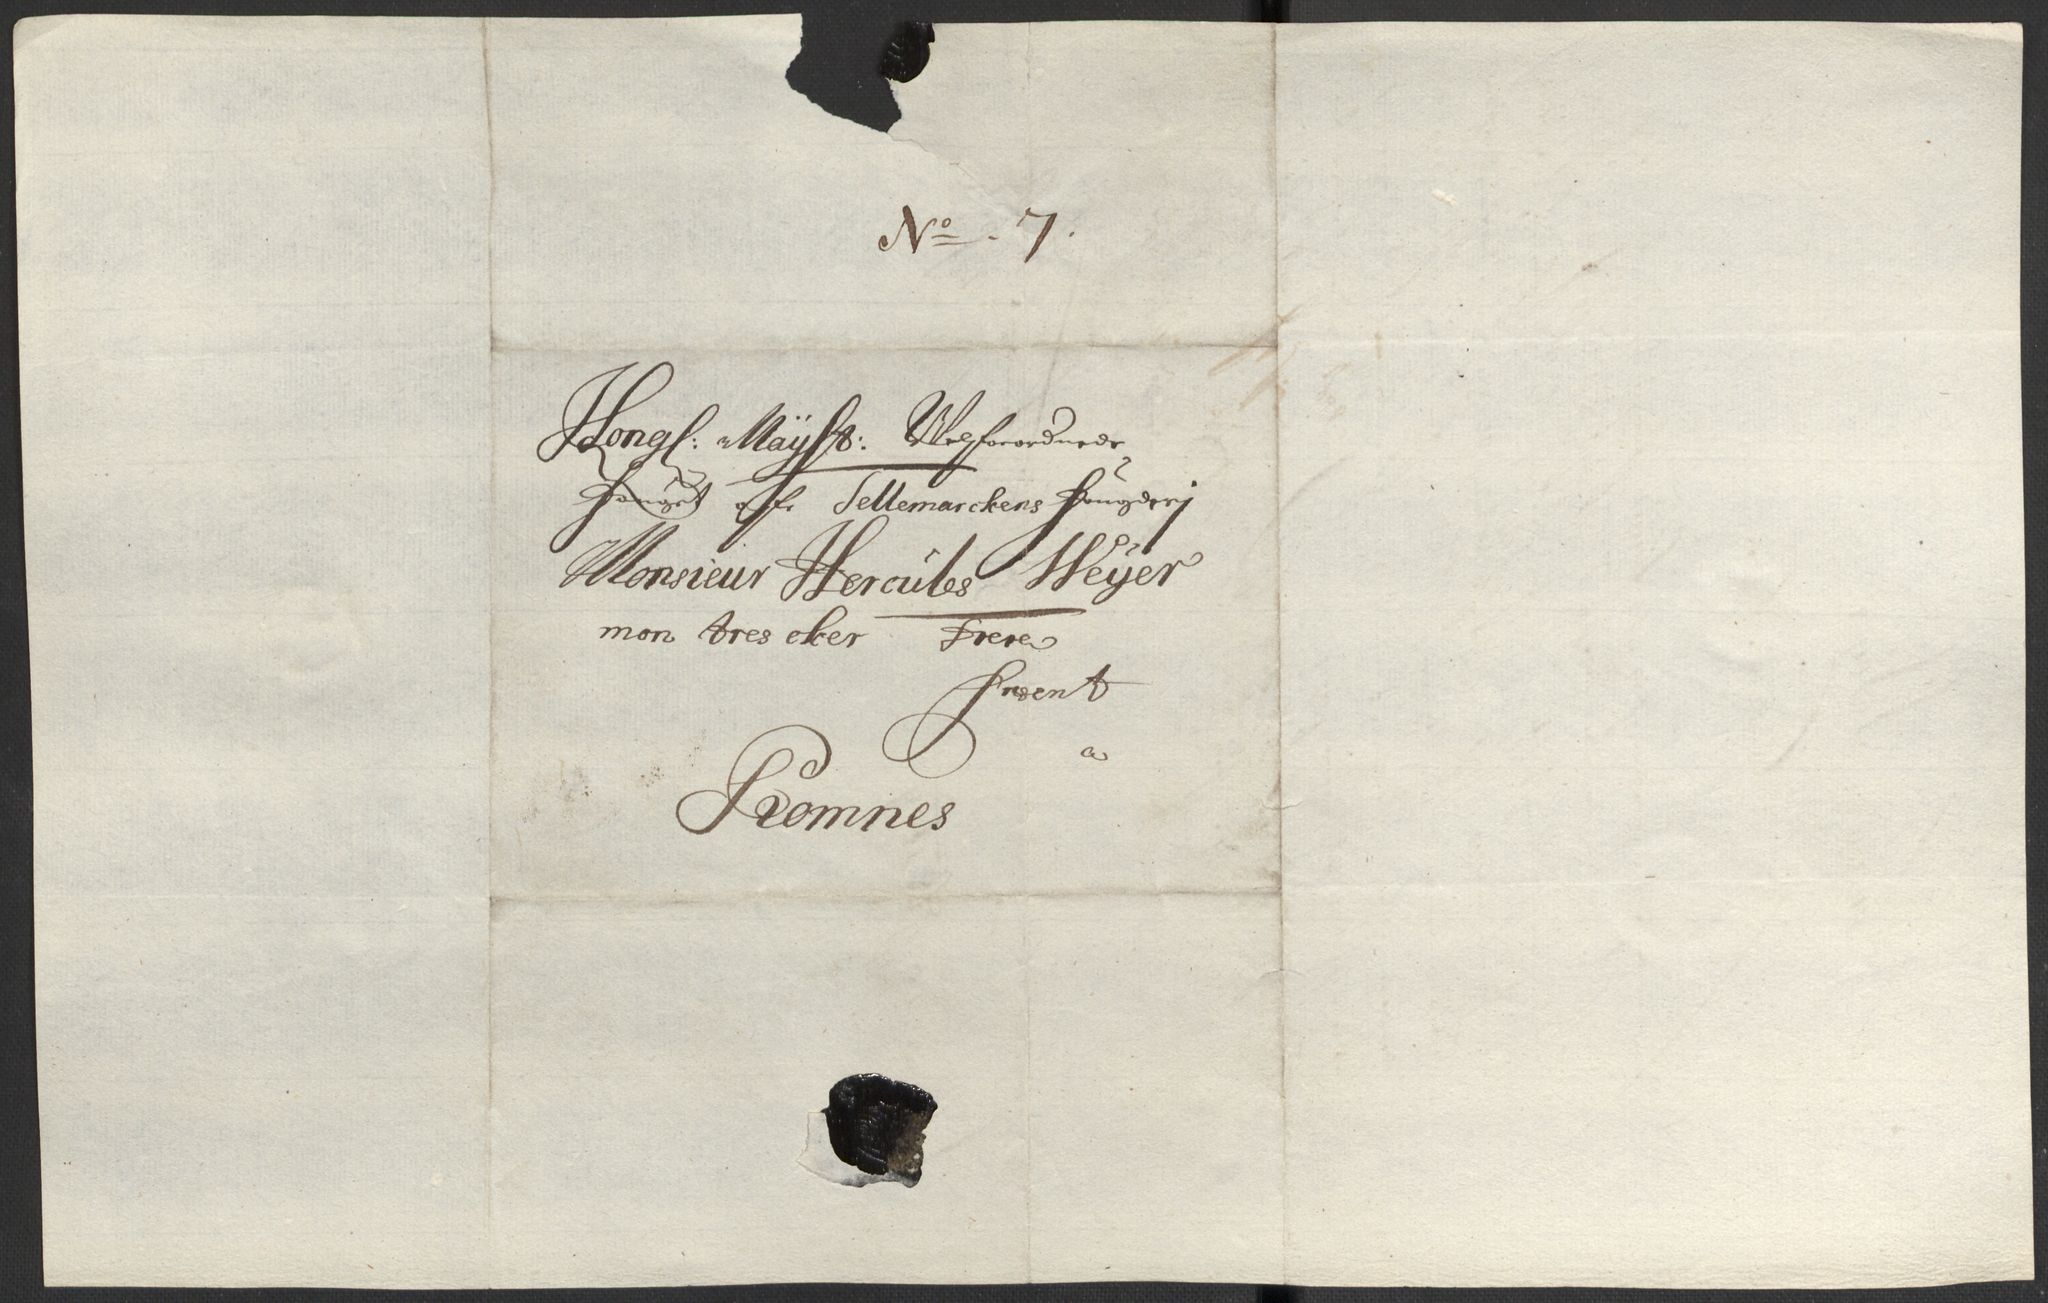 No. 7.
Kongl: Maÿsts: Welforordnede
Fouget ofr Tellemarckens fougderj
Monsieur Hercules Weÿer
mon tres cher Frere
Present
a
Romnes